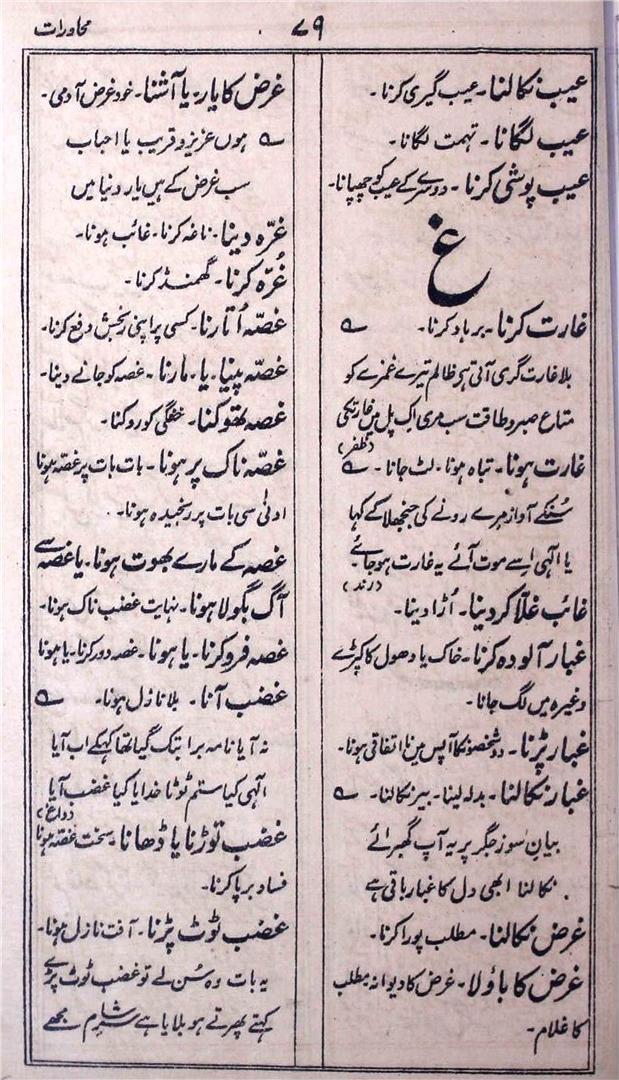 محاورات
۷۹
عیب نکالنا۔ عیب گیری کرنا۔
عیب لگانا۔ تہمت لگانا۔
عیب پوشی کرنا۔ دوسرے کے عیب کو چھپانا۔
غ
غارت کرنا۔ برباد کرنا۔ ؎
بلا غارت گری آتی ہی ظالم تیرے غمزے کو
متاع صبر و طاقت سب مری اک پل میں غارت کی
(ظفر)
غارت ہونا۔ تباہ ہونا۔ لٹ جانا۔ ؎
سُنکے آواز مرے رونے کی جھنجھلا کے کہا
یا الٰہی اِسے موت آئے یہ غارت ہو جائے
(رند)
غائب غلّا کر دینا۔ اُڑا دینا۔
غبار آلودہ کرنا۔ خاک یا دھول کا کپڑے
وغیرہ میں لگ جانا۔
غبار پڑنا۔ دو شخصونکا آپس میں نا اتفاقی ہونا۔
غبار نکالنا۔ بدلہ لینا۔ بیر نکالنا۔ ؎
بیانِ سوزِ جگر پر یہ آپ گھبرائے
نکالنا ابھی دل کا غبار باقی ہے
غرض نکالنا۔ مطلب پورا کرنا۔
غرض کا باؤلا۔ غرض کا دیوانہ مطلب
کا غلام۔
غرض کا یار۔ یا آشنا۔ خود غرض آدمی۔
؎ ہوں عزیز و قریب یا احباب
سب غرض کے ہیں یار دنیا میں
غرّہ دینا۔ ناغہ کرنا۔ غائب ہونا۔
غُرّہ کرنا۔ گھمنڈ کرنا۔
غصّہ اُتارنا۔ کسی پر اپنی رنجش دفع کرنا۔
غصّہ پینا۔ یا۔ مارنا۔ غصہ کو جانے دینا۔
غصہ تھوکنا۔ خفگی کو روکنا۔
غصّہ ناک پر ہونا۔ بات بات پر غصّہ ہونا
ادنٰی سی بات پر رنجیدہ ہونا۔
غصہ کے مارے بھوت ہونا۔ یا غصّہ سے
آگ بگولا ہونا۔ نہایت غضب ناک ہونا۔
غصہ فرو کرنا۔ یا ہونا۔ غصہ دور کرنا۔ یا ہونا
غضب آنا۔ بلا نازل ہونا۔ ؎
نہ آیا نامہ بر ابتک گیا تھا کہکے اب آیا
الٰہی کیا ستم ٹوٹا خدایا کیا غضب آیا
(داغ)
غضب توڑنا یا ڈھانا۔ سخت غصّہ ہونا
فساد برپا کرنا۔
غضب ٹوٹ پڑنا۔ آفت نازل ہونا۔
یہ بات وہ سُن لے تو غضب ٹوٹ پڑے
کہتے پھرتے ہو بلایا ہے سرِ شام مجھے